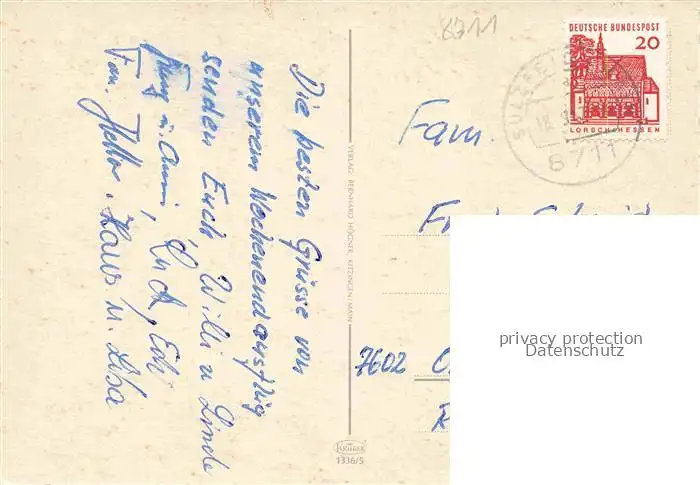 8711
DEUTSCHE BUNDESPOST
20
LORSCH/HESSEN
SULZFELD
8711
Die besten Grüsse von
unserem Wochenendausflug
senden Euch, Willi u Linde
u. Anni, Luck, Edi
Fam. Heller, Hans u. Lisa
VERLAG: REINHARD HÜGNER, KITZINGEN/MAIN
KRÜGER
1336/5
Fam.
7602 O
R
privacy protection
Datenschutz